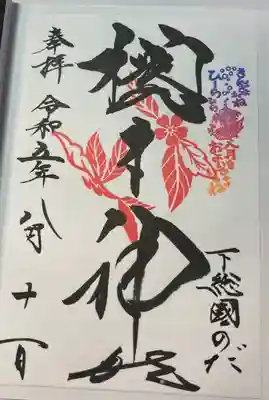 下総國のだ
櫻木神社
奉拝
令和五年八月十一日